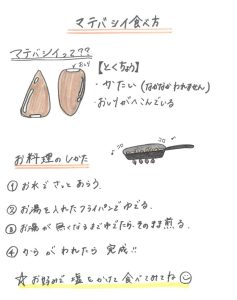 マテバシイ食べ方
マテバシイって??
おしり
【とくちょう】
・かたい(なかなかわれません)
・おしりがへこんでいる
お料理のしかた
①お水でさっとあらう。
②お湯を入れたフライパンでゆでる。
③お湯が無くなるまでゆでたら、そのまま煎る。
④からがわれたら完成!!
☆お好みで塩をかけて食べてみてね☺